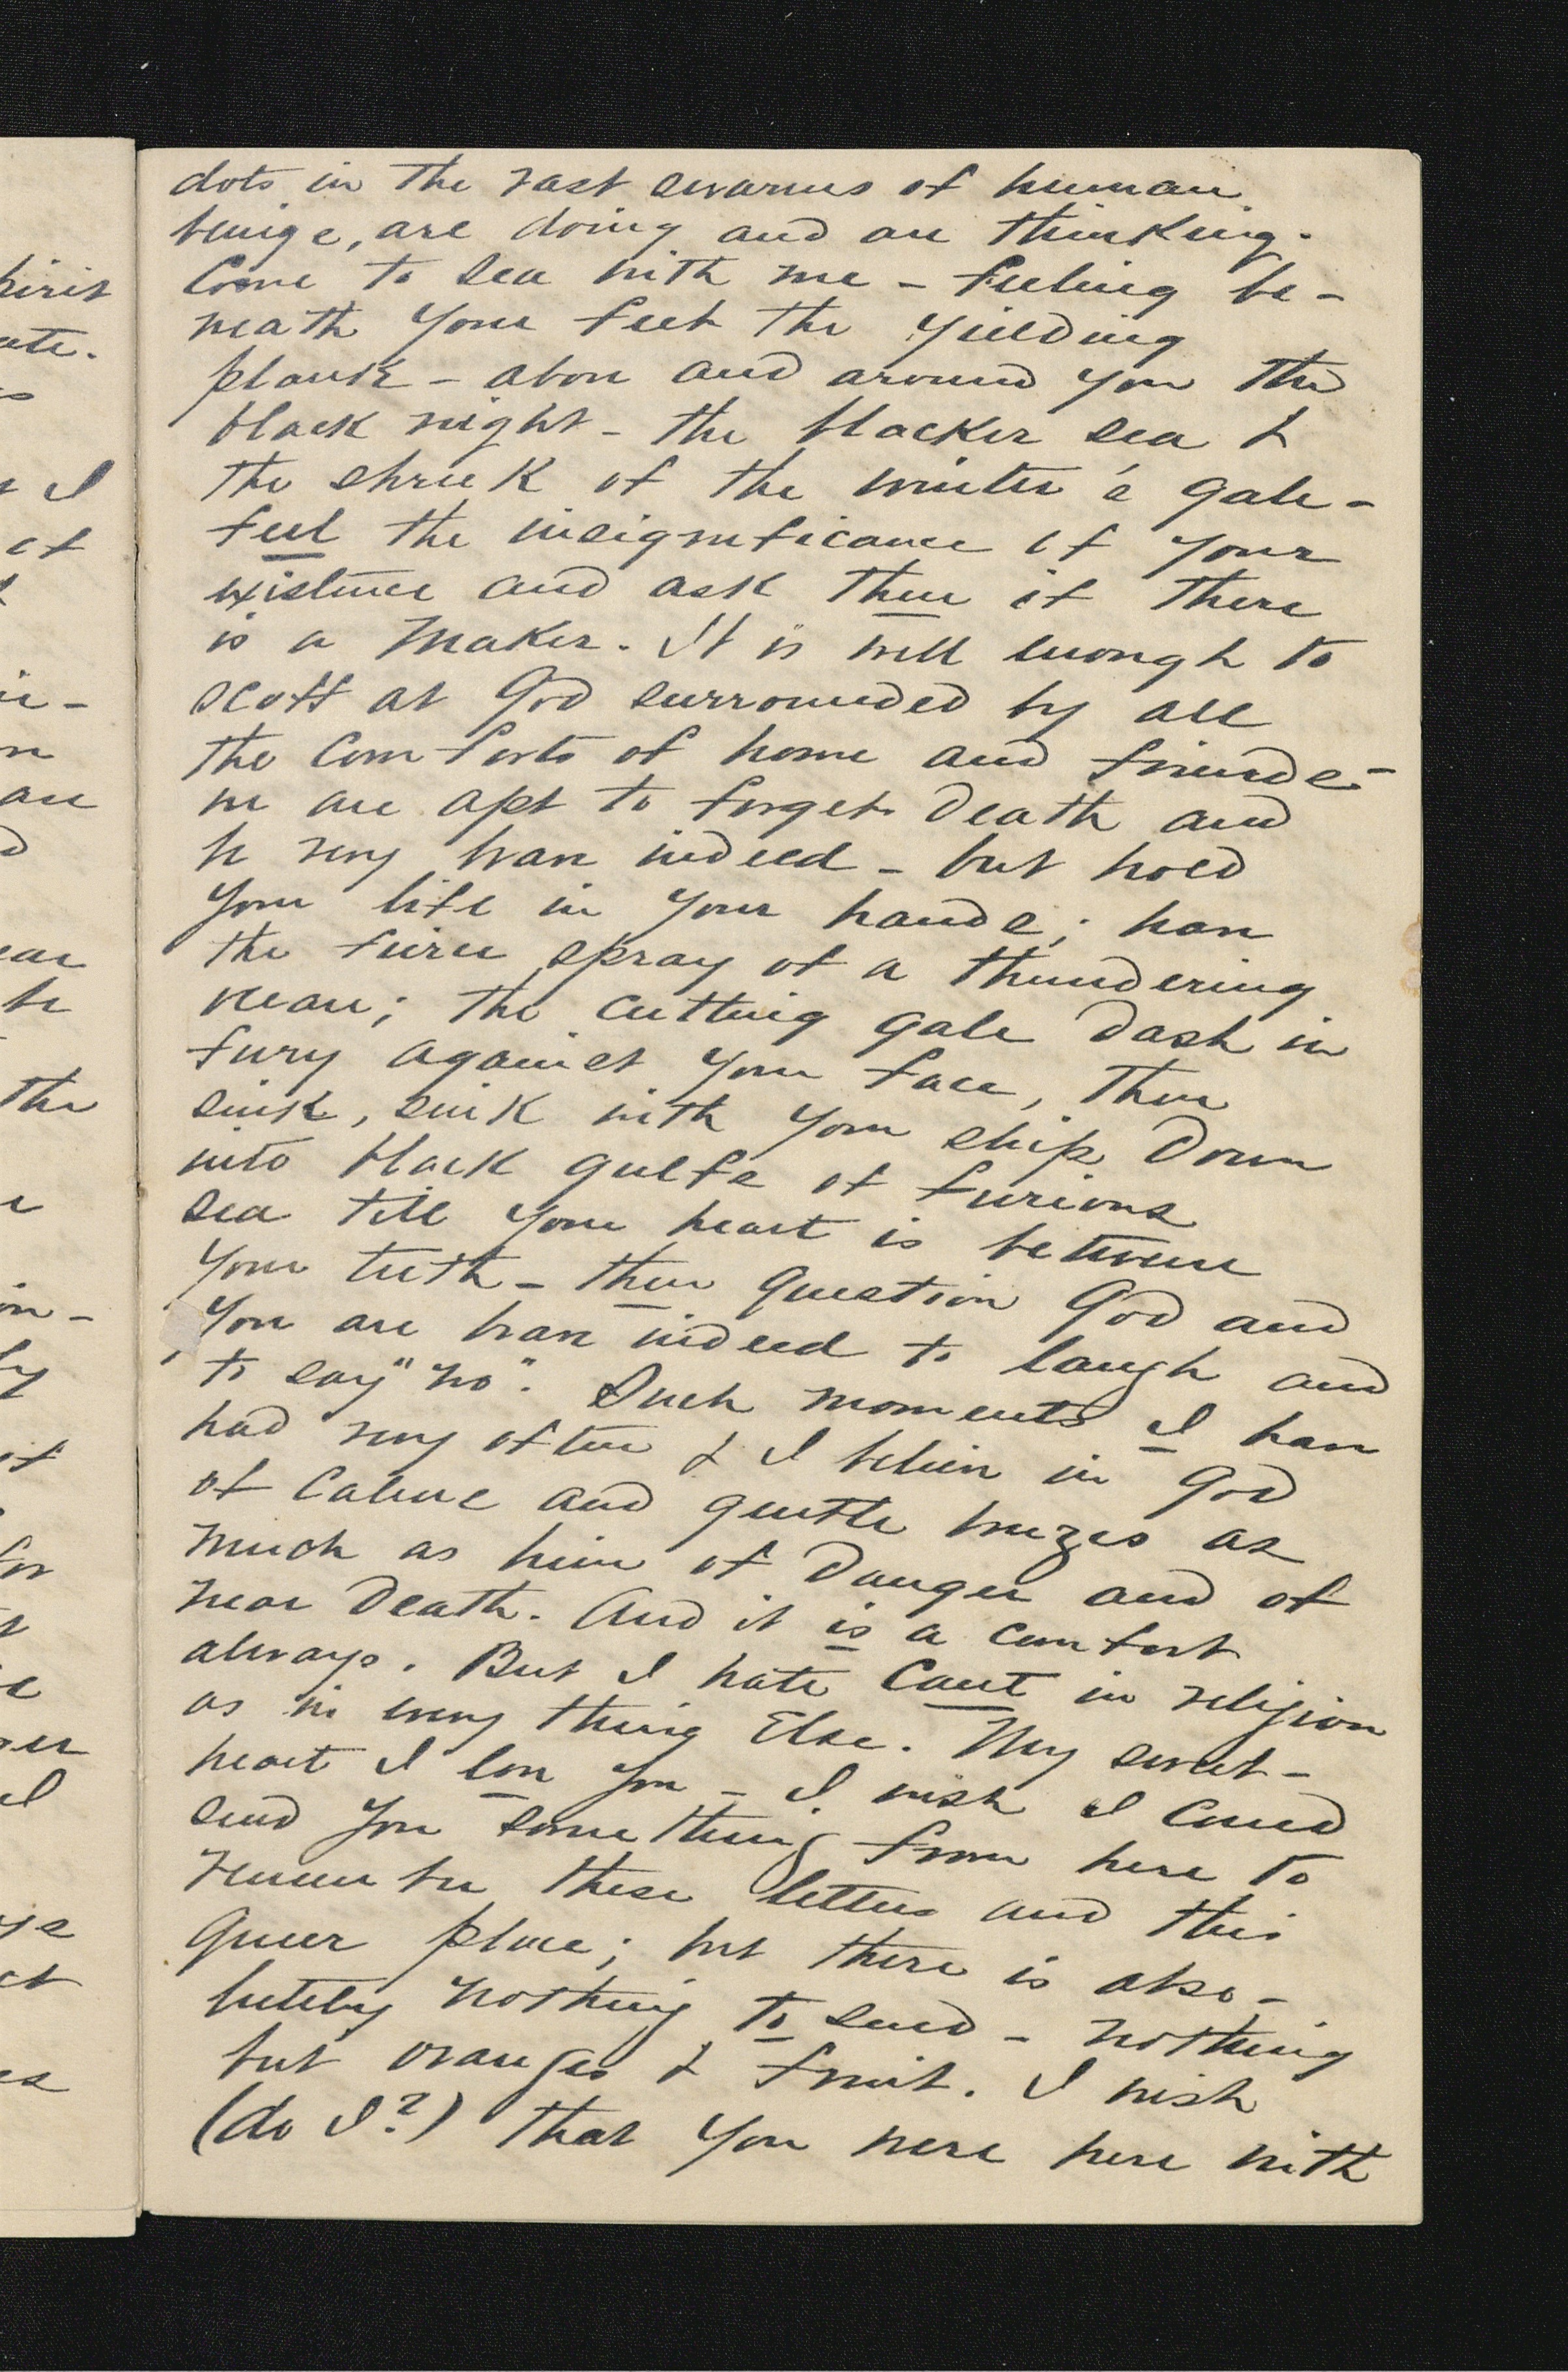 dots in the vast swarms of human
beings, are doing and are thinking.
Come to sea with me - feeling be-
neath your feet the yielding
plank - above and around you the
black night - the blacker sea &
the shriek of the winter's gale -
feel the insignificance of your
existence and ask then if there
is a Maker. It is well enough to
scoff at God surrounded by all
the comforts of home and friends -
we are apt to forget Death and
be very brave indeed - but hold
your life in your hands; have
the fierce spray of a thundering
ocean; the cutting gale dash in
fury against your face, then
sink, sink with your ship down
into black gulfs of furious
sea till your heart is between
your teeth - then question God and
you are brave indeed to laugh and
to say "no". Such moments I have
had very often & I believe in God
of calms and gentle breezes as
much as him of Danger and of
near Death. And it is a comfort
always. But I hate Cant in religion
as in every thing Else. My sweet-
heart I love you - I wish I could
send you something from here to
remember these letters and this
queer place; but there is abso-
lutely nothing to send - nothing
but oranges & fruit. I wish
(do I?) that you were here with
hirit
ate.
I
of
are
the
of
for